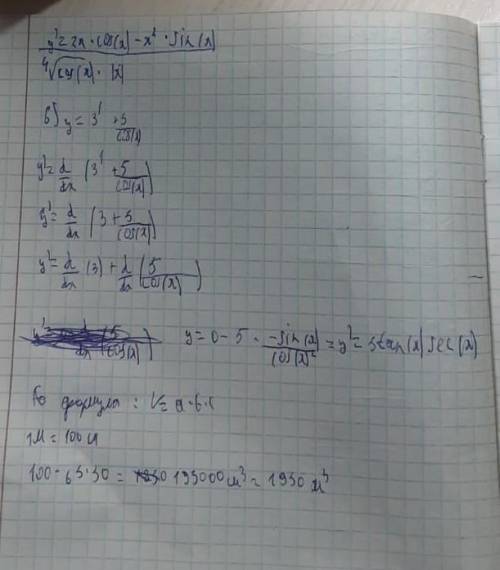 y' = 2x · cos(x) - x² · sin(x)
⁴√cos(x) · |x|
б) y = 3¹ + 5
cos(x)
y' = d/dx (3¹ + 5/cos(x))
y' = d/dx (3 + 5/cos(x))
y' = d/dx (3) + d/dx (5/cos(x))
y = 0 - 5 · -sin(x)/cos(x)² = y' = 5tan(x) sec(x)
По формуле : V = a · b · c
1м = 100 см
100 · 65 · 30 = 195000 см³ = 1950 м³